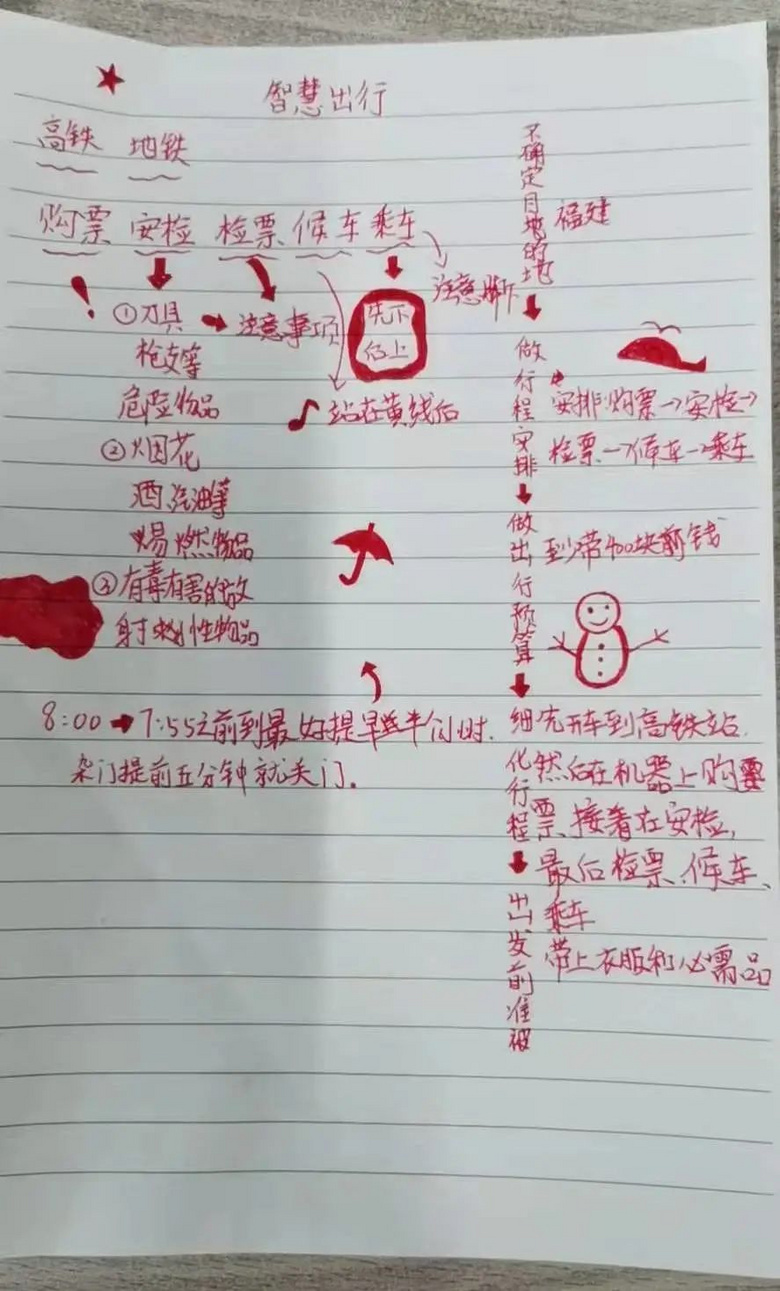 智慧出行
高铁 地铁
购票 安检 检票 候车 乘车
注意脚下
①刀具
注意事项
先下
后上
枪支等
危险物品
站在黄线后
②烟花
酒 汽油等
易燃物品
③有毒有害的放
射性物品
8:00 → 7:55之前到最好提早些半个小时.
杂门提前五分钟就关门.
不确定目地的地
福建
做行程安排
安排:购票→安检→
检票→候车→乘车
做出行预算
到带400块前钱
细化行程
先开车到高铁站.
然后在机器上购要
票、接着在安检,
最后检票、候车、
乘车
出发前准被
带上衣服和必需品